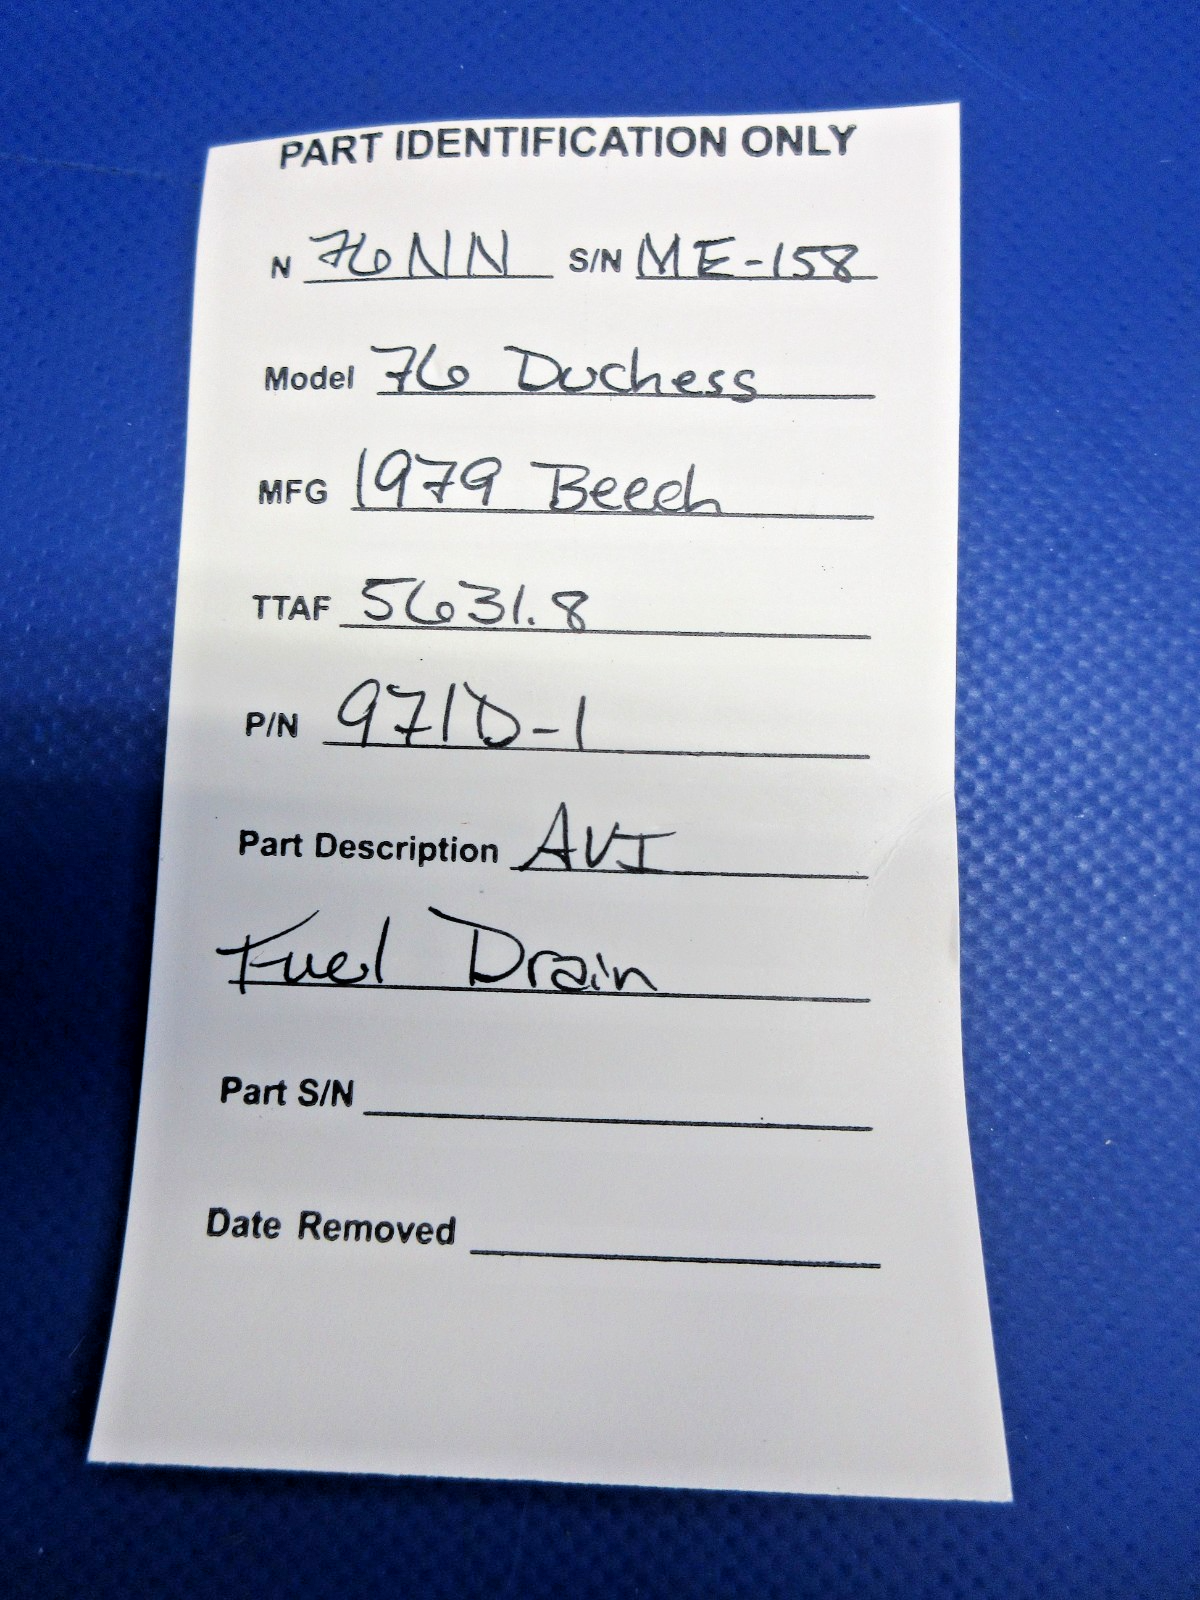 PART IDENTIFICATION ONLY
N 76NN S/N ME-158
Model 76 Duchess
MFG 1979 Beech
TTAF 5631.8
P/N 971D-1
Part Description AVI
Fuel Drain
Part S/N
Date Removed